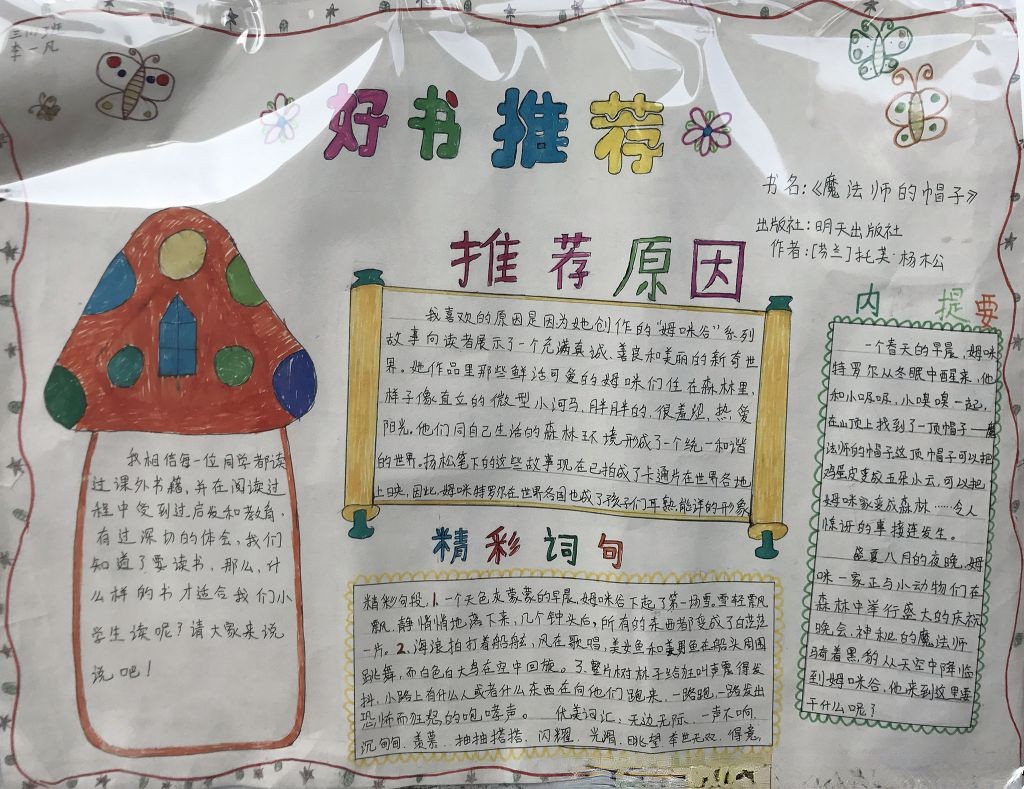 李一凡
好书推荐
书名:《魔法师的帽子》
出版社:明天出版社
作者:[芬兰]托芙·杨松
推荐原因
我喜欢的原因是因为她创作的“姆咪谷”系列
故事向读者展示了一个充满真诚、善良和美丽的新奇世
界。她作品里那些鲜活可爱的姆咪们住在森林里,
样子像直立的微型小河马,胖胖的,很羞怩,热爱
阳光。他们同自己生活的森林环境形成了一个统一和谐
的世界。扬松笔下的这些故事现在已拍成了卡通片在世界各地
上映,因此,姆咪特罗尔在世界各国也成了孩子们耳熟能详的形象
内 提要
一个春天的早晨,姆咪
特罗尔从冬眠中醒来,他
和小吸吸,小嗅嗅一起,
在山顶上找到了一顶帽子——魔
法师的帽子这顶帽子可以把
鸡蛋皮变成五朵小云,可以把
姆咪家变成森林……令人
惊讶的事接连发生。
盛夏八月的夜晚,姆
咪一家正与小动物们在
森林中举行盛大的庆祝
晚会,神秘的魔法师
骑着黑豹从天空中降临
到姆咪谷,他来到这里要
干什么呢?
我相信每一位同学都读
过课外书籍,并在阅读过
程中受到过启发和教育,
有过深切的体会,我们
知道了要读书,那么,什
么样的书才适合我们小
学生读呢?请大家来说
说吧!
精彩词句
精彩句段,1.一个天色灰蒙蒙的早晨,姆咪谷下起了第一场雪。雪轻飘
飘,静悄悄地落下来,几个钟头后,所有的东西都变成了白茫茫
一片。2.海浪拍打着船舷,风在歌唱,美女鱼和美男鱼在船头周围
跳舞,而白色的大鸟在空中回旋。3.整片树林子给狂叫声震得发
抖,小路上有什么人或者什么东西在向他们跑来,一路跑,一路发出
恐怖而狂怒的咆哮声。 优美词汇、无边无际、一声不响、
沉甸甸、羡慕、抽抽搭搭、闪耀、光滑、眺望、举世无双、得意,